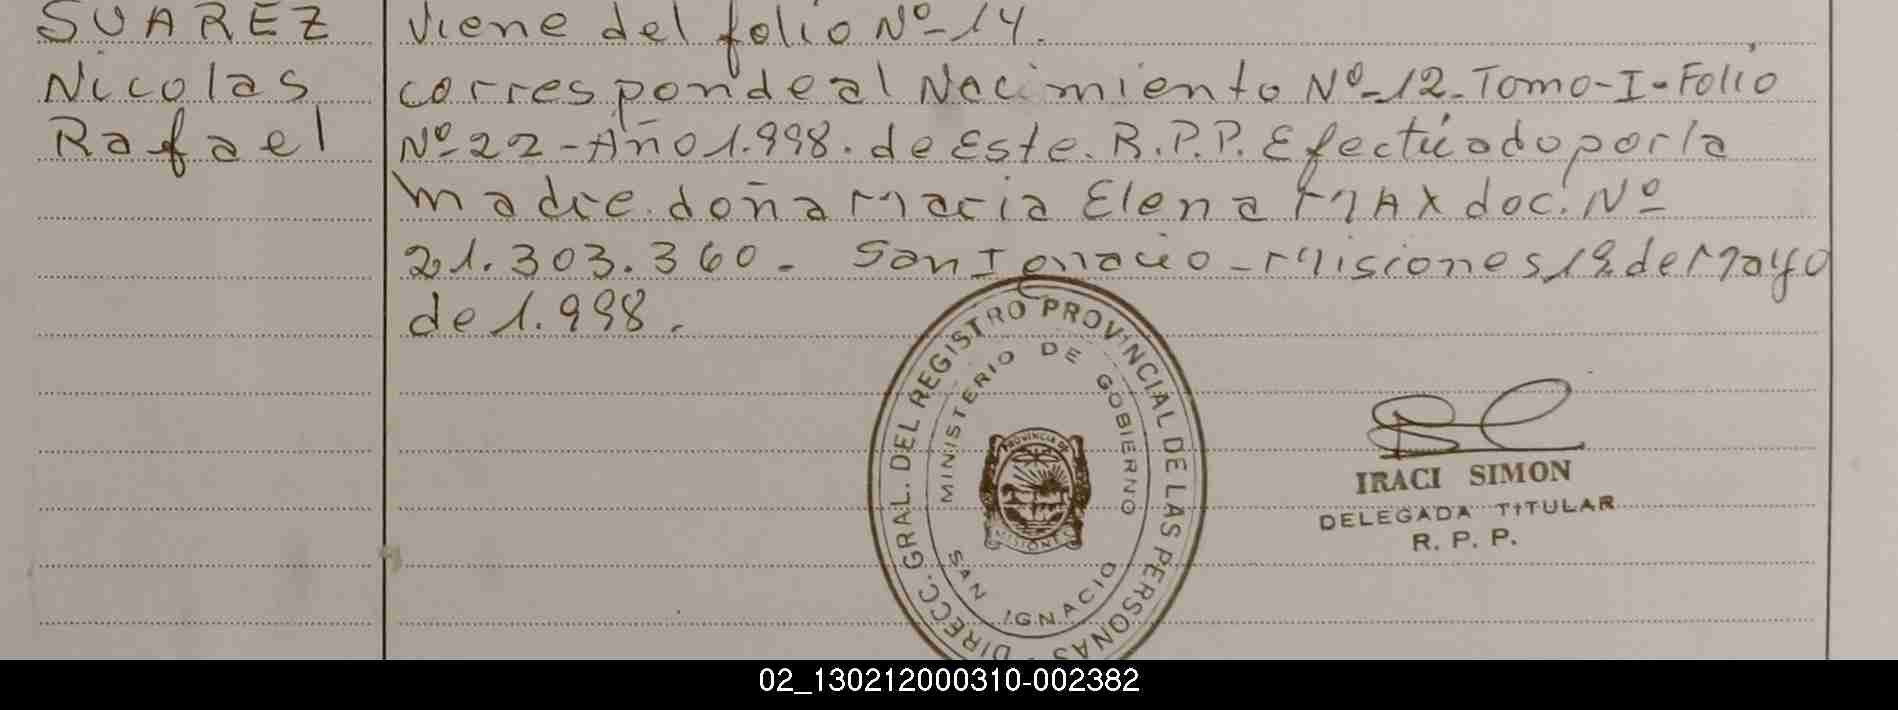 SUAREZ
Nicolas
Rafael
viene del folio Nº-14.
corresponde al Nacimiento Nº-12-Tomo-I-Folio
Nº 22-Año 1.998. de Este. R.P.P. Efectúado por la
madre. doña Maria Elena MAX doc. Nº
21.303.360. San Ignacio-Misiones, 12 de Mayo
de 1.998.
DIRECC. GRAL. DEL REGISTRO PROVINCIAL DE LAS PERSONAS
MINISTERIO DE GOBIERNO
PROVINCIA DE
MISIONES
SAN IGNACIO
IRACI SIMON
DELEGADA TITULAR
R. P. P.
02_130212000310-002382